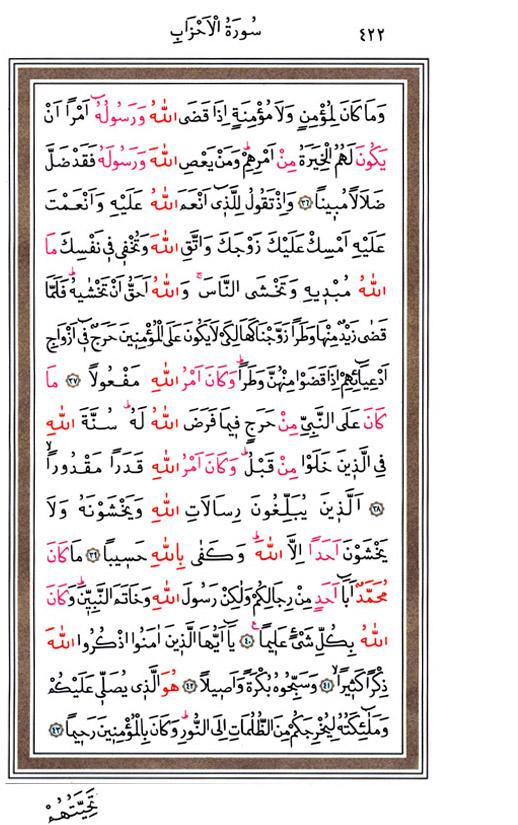 سُورَةُ الْاَحْزَابِ
٤٢٢
وَمَا كَانَ لِمُؤْمِنٍ وَلَا مُؤْمِنَةٍ اِذَا قَضَى اللّٰهُ وَرَسُولُهُٓ اَمْرًا اَنْ
يَكُونَ لَهُمُ الْخِيَرَةُ مِنْ اَمْرِهِمْۜ وَمَنْ يَعْصِ اللّٰهَ وَرَسُولَهُ فَقَدْ ضَلَّ
ضَلَالًا مُبٖينًا ﴿٣٦﴾ وَاِذْ تَقُولُ لِلَّذٖٓي اَنْعَمَ اللّٰهُ عَلَيْهِ وَاَنْعَمْتَ
عَلَيْهِ اَمْسِكْ عَلَيْكَ زَوْجَكَ وَاتَّقِ اللّٰهَ وَتُخْفٖي فٖي نَفْسِكَ مَا
اللّٰهُ مُبْدٖيهِ وَتَخْشَى النَّاسَۚ وَاللّٰهُ اَحَقُّ اَنْ تَخْشٰيهُۜ فَلَمَّا
قَضٰى زَيْدٌ مِنْهَا وَطَرًا زَوَّجْنَاكَهَا لِكَيْ لَا يَكُونَ عَلَى الْمُؤْمِنٖينَ حَرَجٌ فٖٓي اَزْوَاجِ
اَدْعِيَٓائِهِمْ اِذَا قَضَوْا مِنْهُنَّ وَطَرًاۜ وَكَانَ اَمْرُ اللّٰهِ مَفْعُولًا ﴿٣٧﴾ مَا
كَانَ عَلَى النَّبِيِّ مِنْ حَرَجٍ فٖيمَا فَرَضَ اللّٰهُ لَهُۜ سُنَّةَ اللّٰهِ
فِي الَّذٖينَ خَلَوْا مِنْ قَبْلُۜ وَكَانَ اَمْرُ اللّٰهِ قَدَرًا مَقْدُورًاۙ
﴿٣٨﴾ اَلَّذٖينَ يُبَلِّغُونَ رِسَالَاتِ اللّٰهِ وَيَخْشَوْنَهُ وَلَا
يَخْشَوْنَ اَحَدًا اِلَّا اللّٰهَۜ وَكَفٰى بِاللّٰهِ حَسٖيبًا ﴿٣٩﴾ مَا كَانَ
مُحَمَّدٌ اَبَٓا اَحَدٍ مِنْ رِجَالِكُمْ وَلٰكِنْ رَسُولَ اللّٰهِ وَخَاتَمَ النَّبِيّٖنَۜ وَكَانَ
اللّٰهُ بِكُلِّ شَيْءٍ عَلٖيمًاࣖ ﴿٤٠﴾ يَٓا اَيُّهَا الَّذٖينَ اٰمَنُوا اذْكُرُوا اللّٰهَ
ذِكْرًا كَثٖيرًاۙ ﴿٤١﴾ وَسَبِّحُوهُ بُكْرَةً وَاَصٖيلًا ﴿٤٢﴾ هُوَ الَّذٖي يُصَلّٖي عَلَيْكُمْ
وَمَلٰٓئِكَتُهُ لِيُخْرِجَكُمْ مِنَ الظُّلُمَاتِ اِلَى النُّورِۜ وَكَانَ بِالْمُؤْمِنٖينَ رَحٖيمًا ﴿٤٣﴾
تَحِيَّتُهُمْ